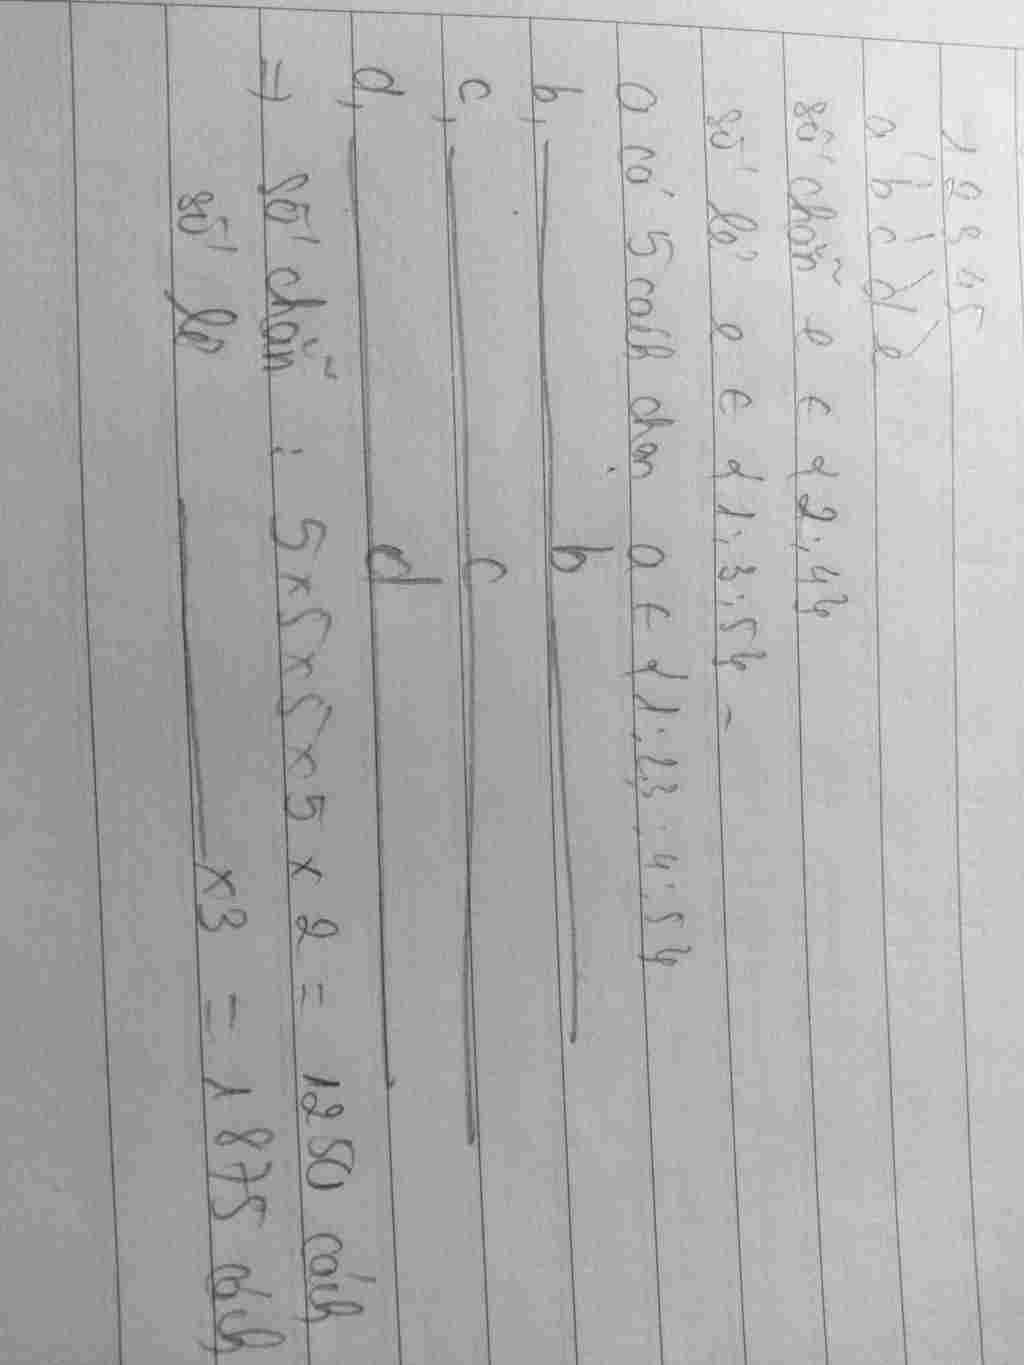 1 2 3 4 5
a b c d e
số chẵn e ∈ {2;4}
số lẻ e ∈ {1;3;5}
a có 5 cách chọn a ∈ {1;2;3;4;5}
b, ———— b ————
c, ———— c ————
d, ———— d ————
=> số chẵn : 5x5x5x5 x 2 = 1250 cách
số lẻ ———— x3 = 1875 cách